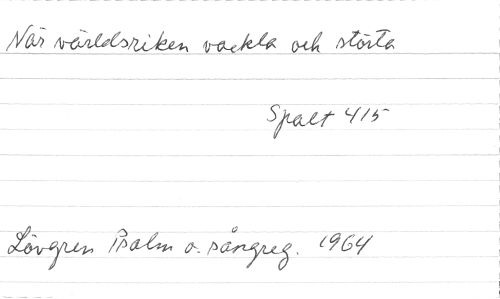 När världsriken vackla och störta
Spalt 415
Lövgren Psalm o. sångreg. 1964